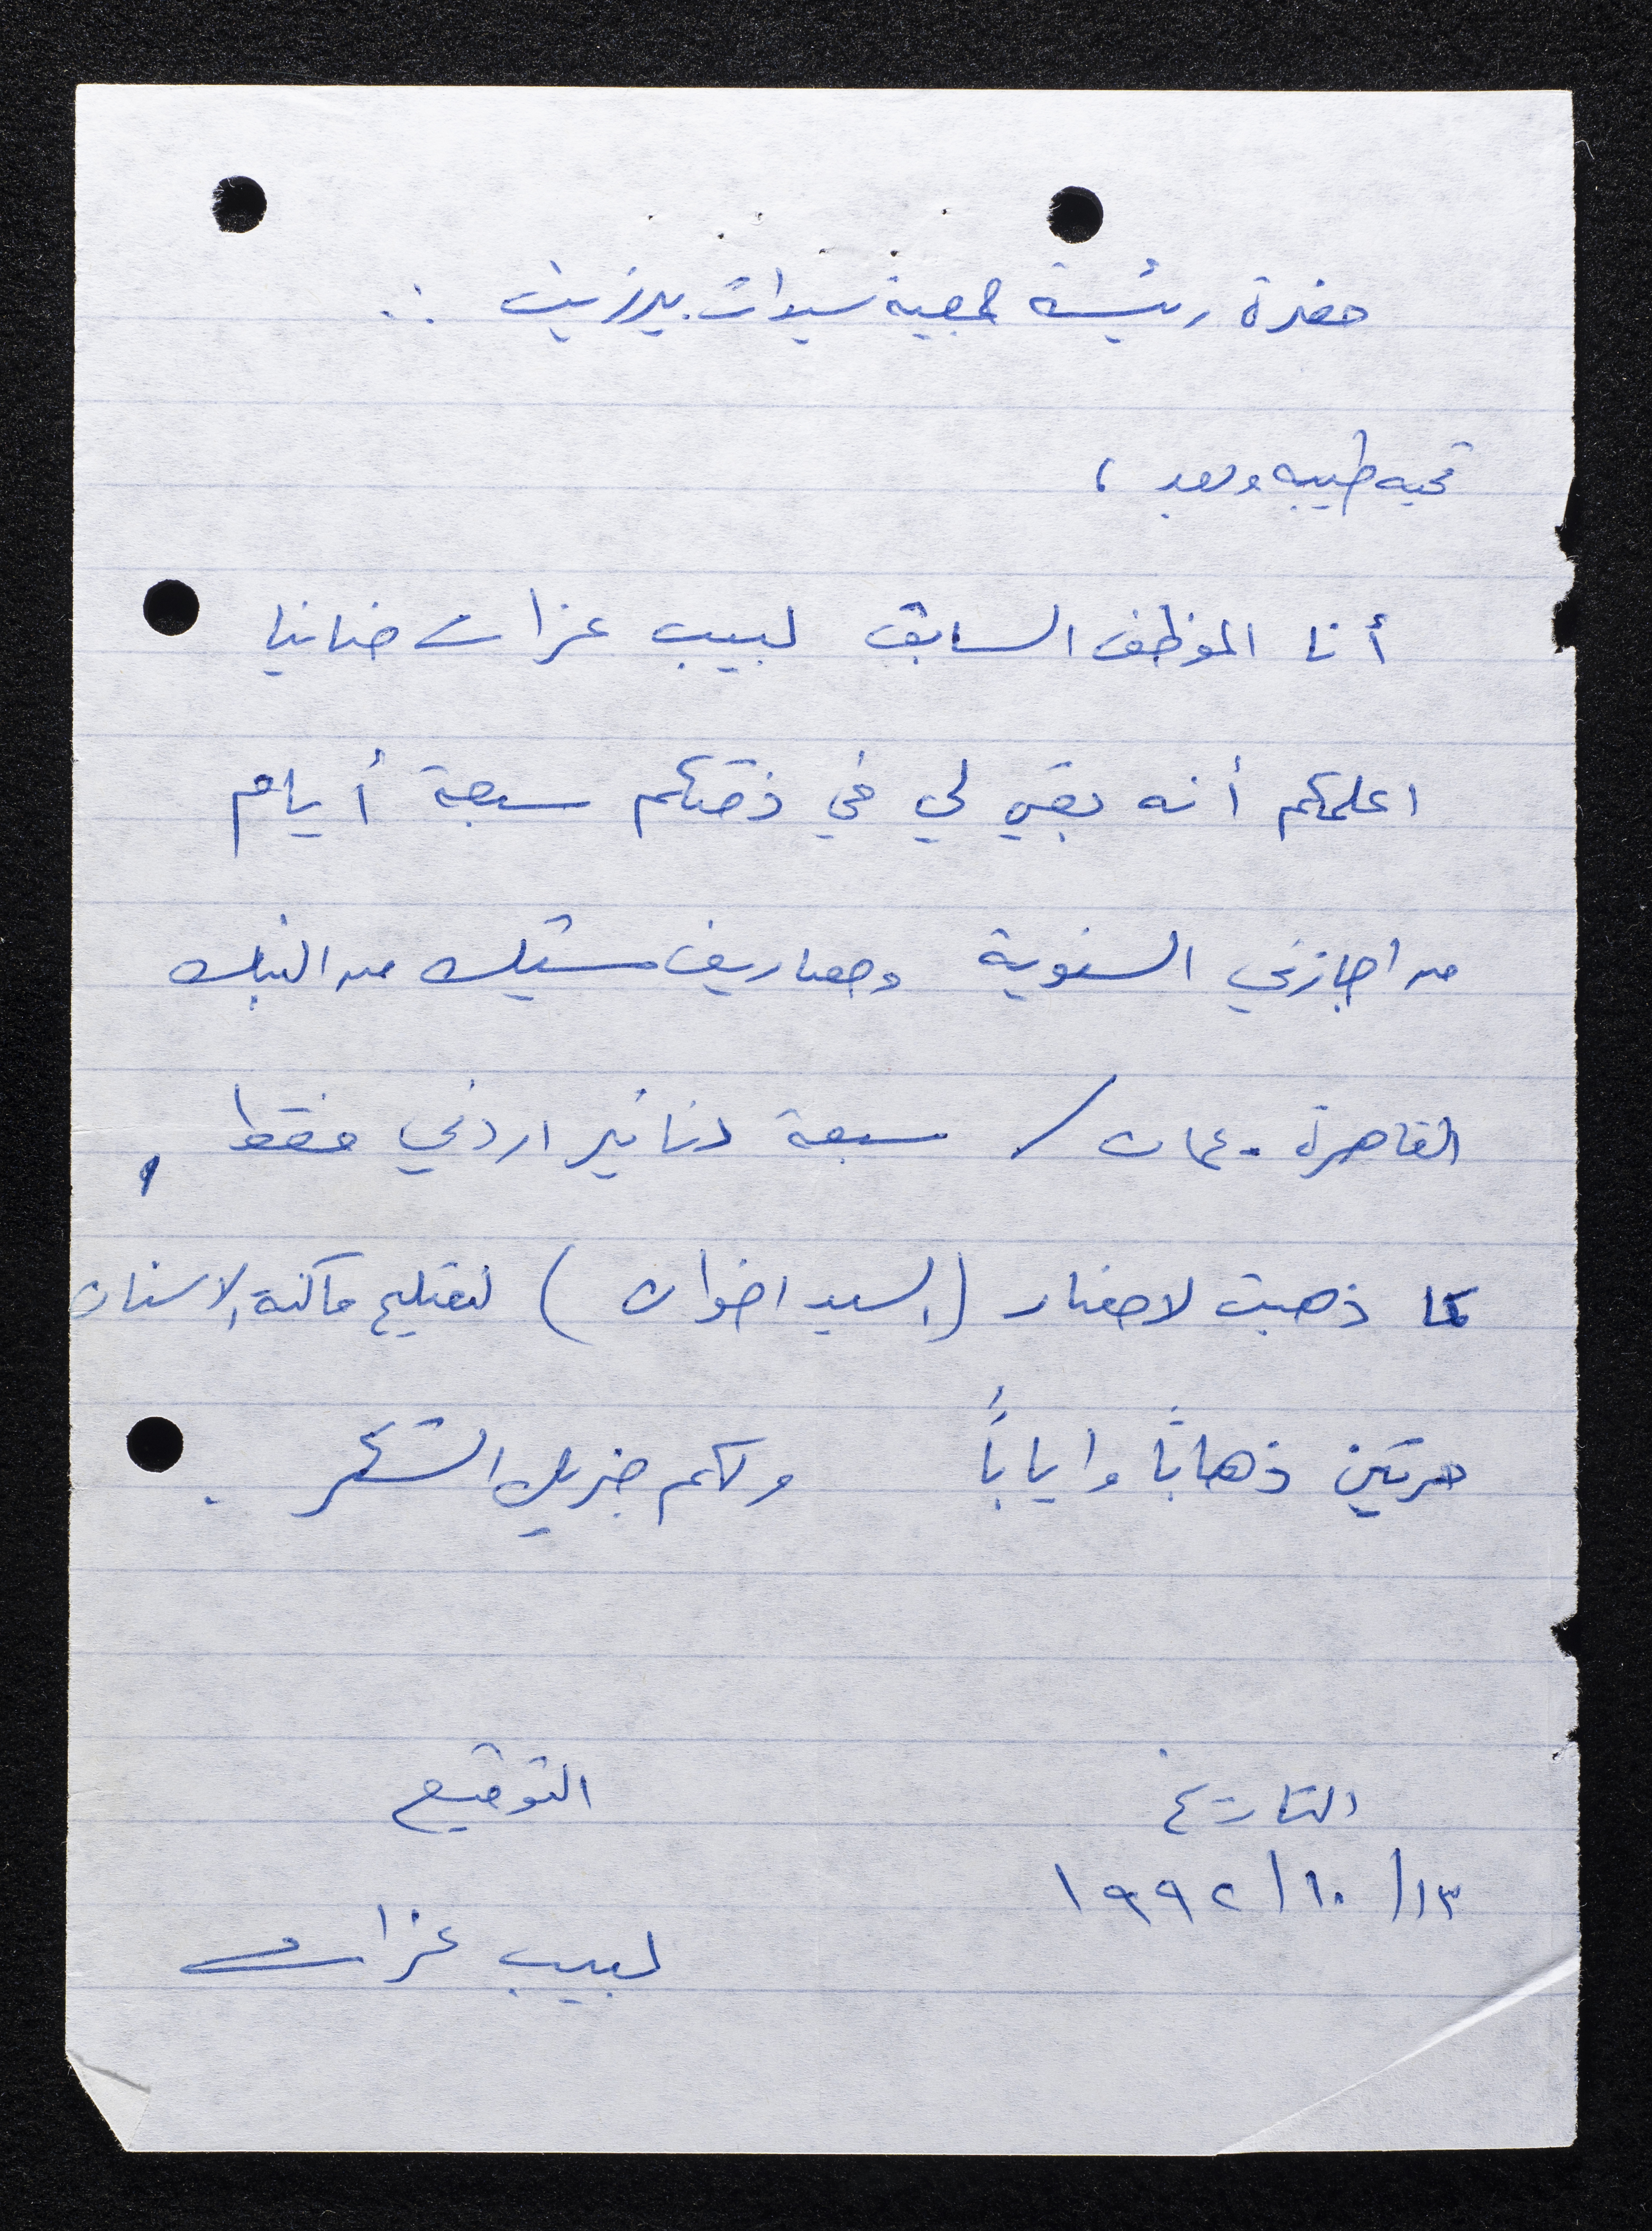 حضرة رئيسة جمعية سيدات بيرزيت :.
تحيه طيبه وبعد ،
أنا الموظف السابق لبيب عزات ضانيا
اعلمكم أنه بقي لي في ذمتكم سبعة أيام
من اجازتي السنوية ومصاريف شيك من البنك
القاهرة - عمان / سبعة دنانير اردني فقط ،
كما ذهبت لاحضار (السيد اخوان) لتصليح ماكنة الاسنان
مرتين ذهاباً واياباً ولكم جزيل الشكر .
التاريخ التوقيع
١٣/ ١٠/ ١٩٩٢
لبيب عزات